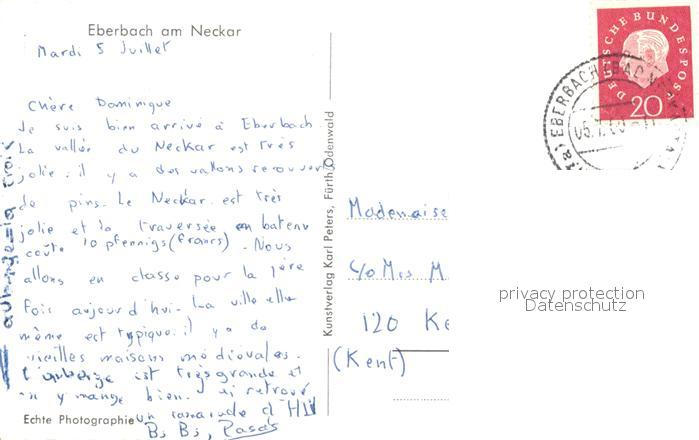 Eberbach am Neckar
Mardi 5 Juillet
Chère Dominique
Je suis bien arrivé à Eberbach
La vallée du Neckar est très
jolie. il y a des vallons recouverts
de pins. Le Neckar est très
jolie et la traversée en bateau
coûte 10 pfennigs (francs). Nous
allons en classe pour la 1ère
Fois aujourd'hui. La ville elle
même est typique. il y a de
vieilles maisons médiévales.
L'auberge est très grande et
on y mange bien.
un camarade d'
Bj Bj,
Echte Photographie
Kunstverlag Karl Peters, Fürth/Odenwald
DEUTSCHE BUNDESPOST
20
EBERBACH (BADEN)
Mademoise
c/o Mrs M
120 Ke
(Kent)
privacy protection
Datenschutz